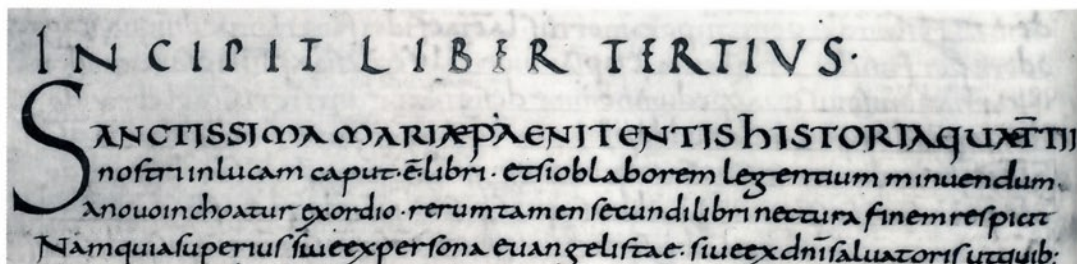 INCIPIT LIBER TERTIVS·
SANCTISSIMA MARIAE PAENITENTIS hISTORIA QUAE T̄TII
noſtri in lucam caput·ē libri· et ſi ob laborem legentium minuendum·
a nouo inchoatur exordio· rerum tamen ſecundi libri nectura finem reſpicit
Nam quia ſuperius ſiue ex perſona euangeliſtae· ſiue ex dn̄i ſaluatoris ut quib: